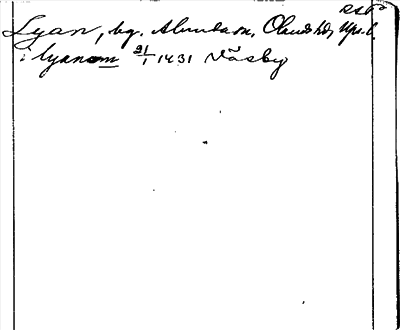 Lyan, by. Almunda sn, Olands hd, Ups. l.
i lyanom 21/1 1431 Väsby